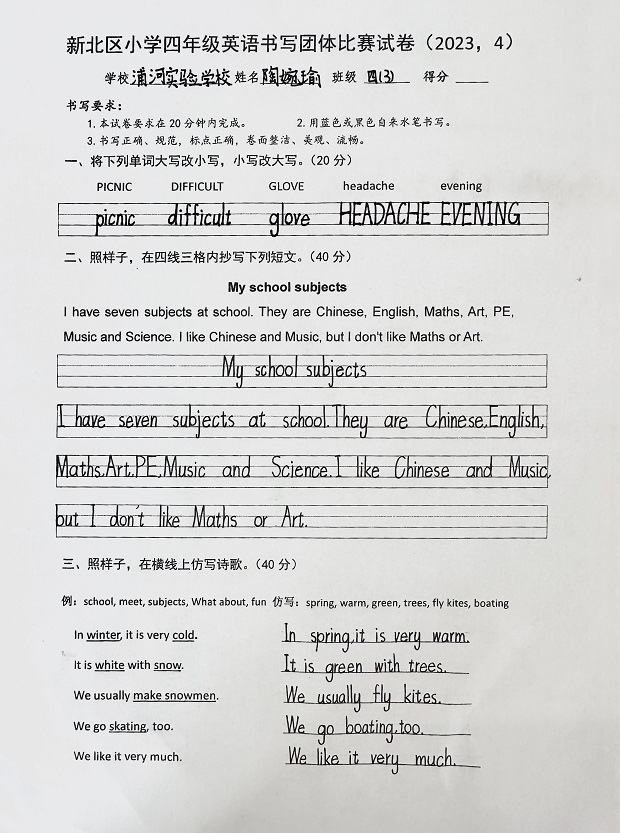 新北区小学四年级英语书写团体比赛试卷（2023，4）
学校 浦河实验学校 姓名 陶婉瑜 班级 四(3) 得分
书写要求：
1. 本试卷要求在 20 分钟内完成。 2. 用蓝色或黑色自来水笔书写。
3. 书写正确、规范，标点正确，卷面整洁、美观、流畅。
一、将下列单词大写改小写，小写改大写。（20 分）
PICNIC DIFFICULT GLOVE headache evening
picnic difficult glove HEADACHE EVENING
二、照样子，在四线三格内抄写下列短文。（40 分）
My school subjects
I have seven subjects at school. They are Chinese, English, Maths, Art, PE,
Music and Science. I like Chinese and Music, but I don't like Maths or Art.
My school subjects
I have seven subjects at school.They are Chinese,English,
Maths,Art,PE,Music and Science.I like Chinese and Music,
but I don't like Maths or Art.
三、照样子，在横线上仿写诗歌。（40 分）
例：school, meet, subjects, What about, fun 仿写：spring, warm, green, trees, fly kites, boating
In winter, it is very cold. In spring,it is very warm.
It is white with snow. It is green with trees.
We usually make snowmen. We usually fly kites.
We go skating, too. We go boating,too.
We like it very much. We like it very much.